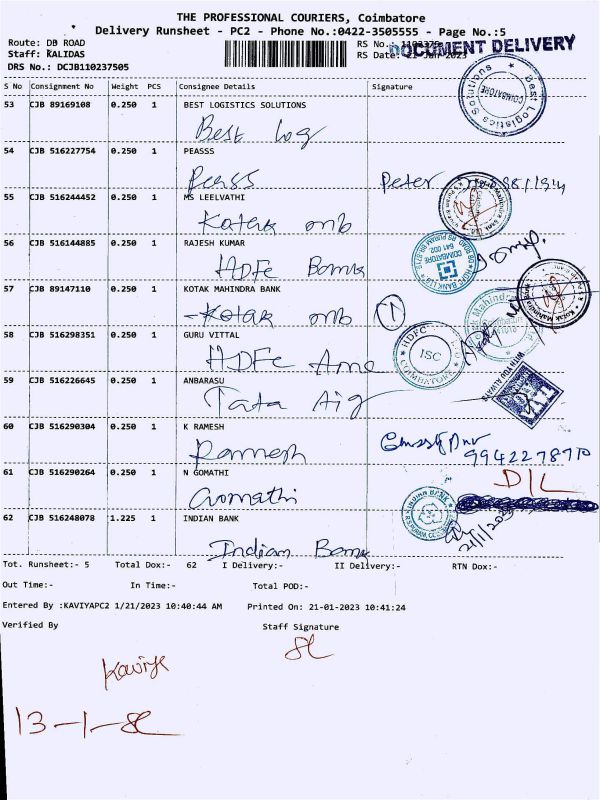 THE PROFESSIONAL COURIERS, Coimbatore
Delivery Runsheet - PC2 - Phone No.:0422-3505555 - Page No.:5
Route: DB ROAD
Staff: KALIDAS
DRS No.: DCJB110237505
RS No.:
RS Date: 21-Jan-2023
DOCUMENT DELIVERY
S No Consignment No Weight PCS Consignee Details Signature
53 CJB 89169108 0.250 1 BEST LOGISTICS SOLUTIONS
Best Log
Best Logistics Solutions
COIMBATORE
54 CJB 516227754 0.250 1 PEASSS
Peasss Peter
55 CJB 516244452 0.250 1 MS LEELVATHI
Kotak mb
56 CJB 516144885 0.250 1 RAJESH KUMAR
HDFC Bank
HDFC BANK LTD
COIMBATORE
641 002
57 CJB 89147110 0.250 1 KOTAK MAHINDRA BANK
Kotak mb 1
Kotak Mahindra Bank
58 CJB 516298351 0.250 1 GURU VITTAL
HDFC Amc
HDFC
ISC
COIMBATORE
59 CJB 516226645 0.250 1 ANBARASU
Tata Aig
WITH YOU ALWAYS
60 CJB 516290304 0.250 1 K RAMESH
Ramesh
61 CJB 516290264 0.250 1 N GOMATHI
Gomathi D/L
62 CJB 516248078 1.225 1 INDIAN BANK
Indian Bank
INDIAN BANK
Tot. Runsheet:- 5 Total Dox:- 62 I Delivery:- II Delivery:- RTN Dox:-
Out Time:- In Time:- Total POD:-
Entered By :KAVIYAPC2 1/21/2023 10:40:44 AM Printed On: 21-01-2023 10:41:24
Verified By Staff Signature
Kaviya